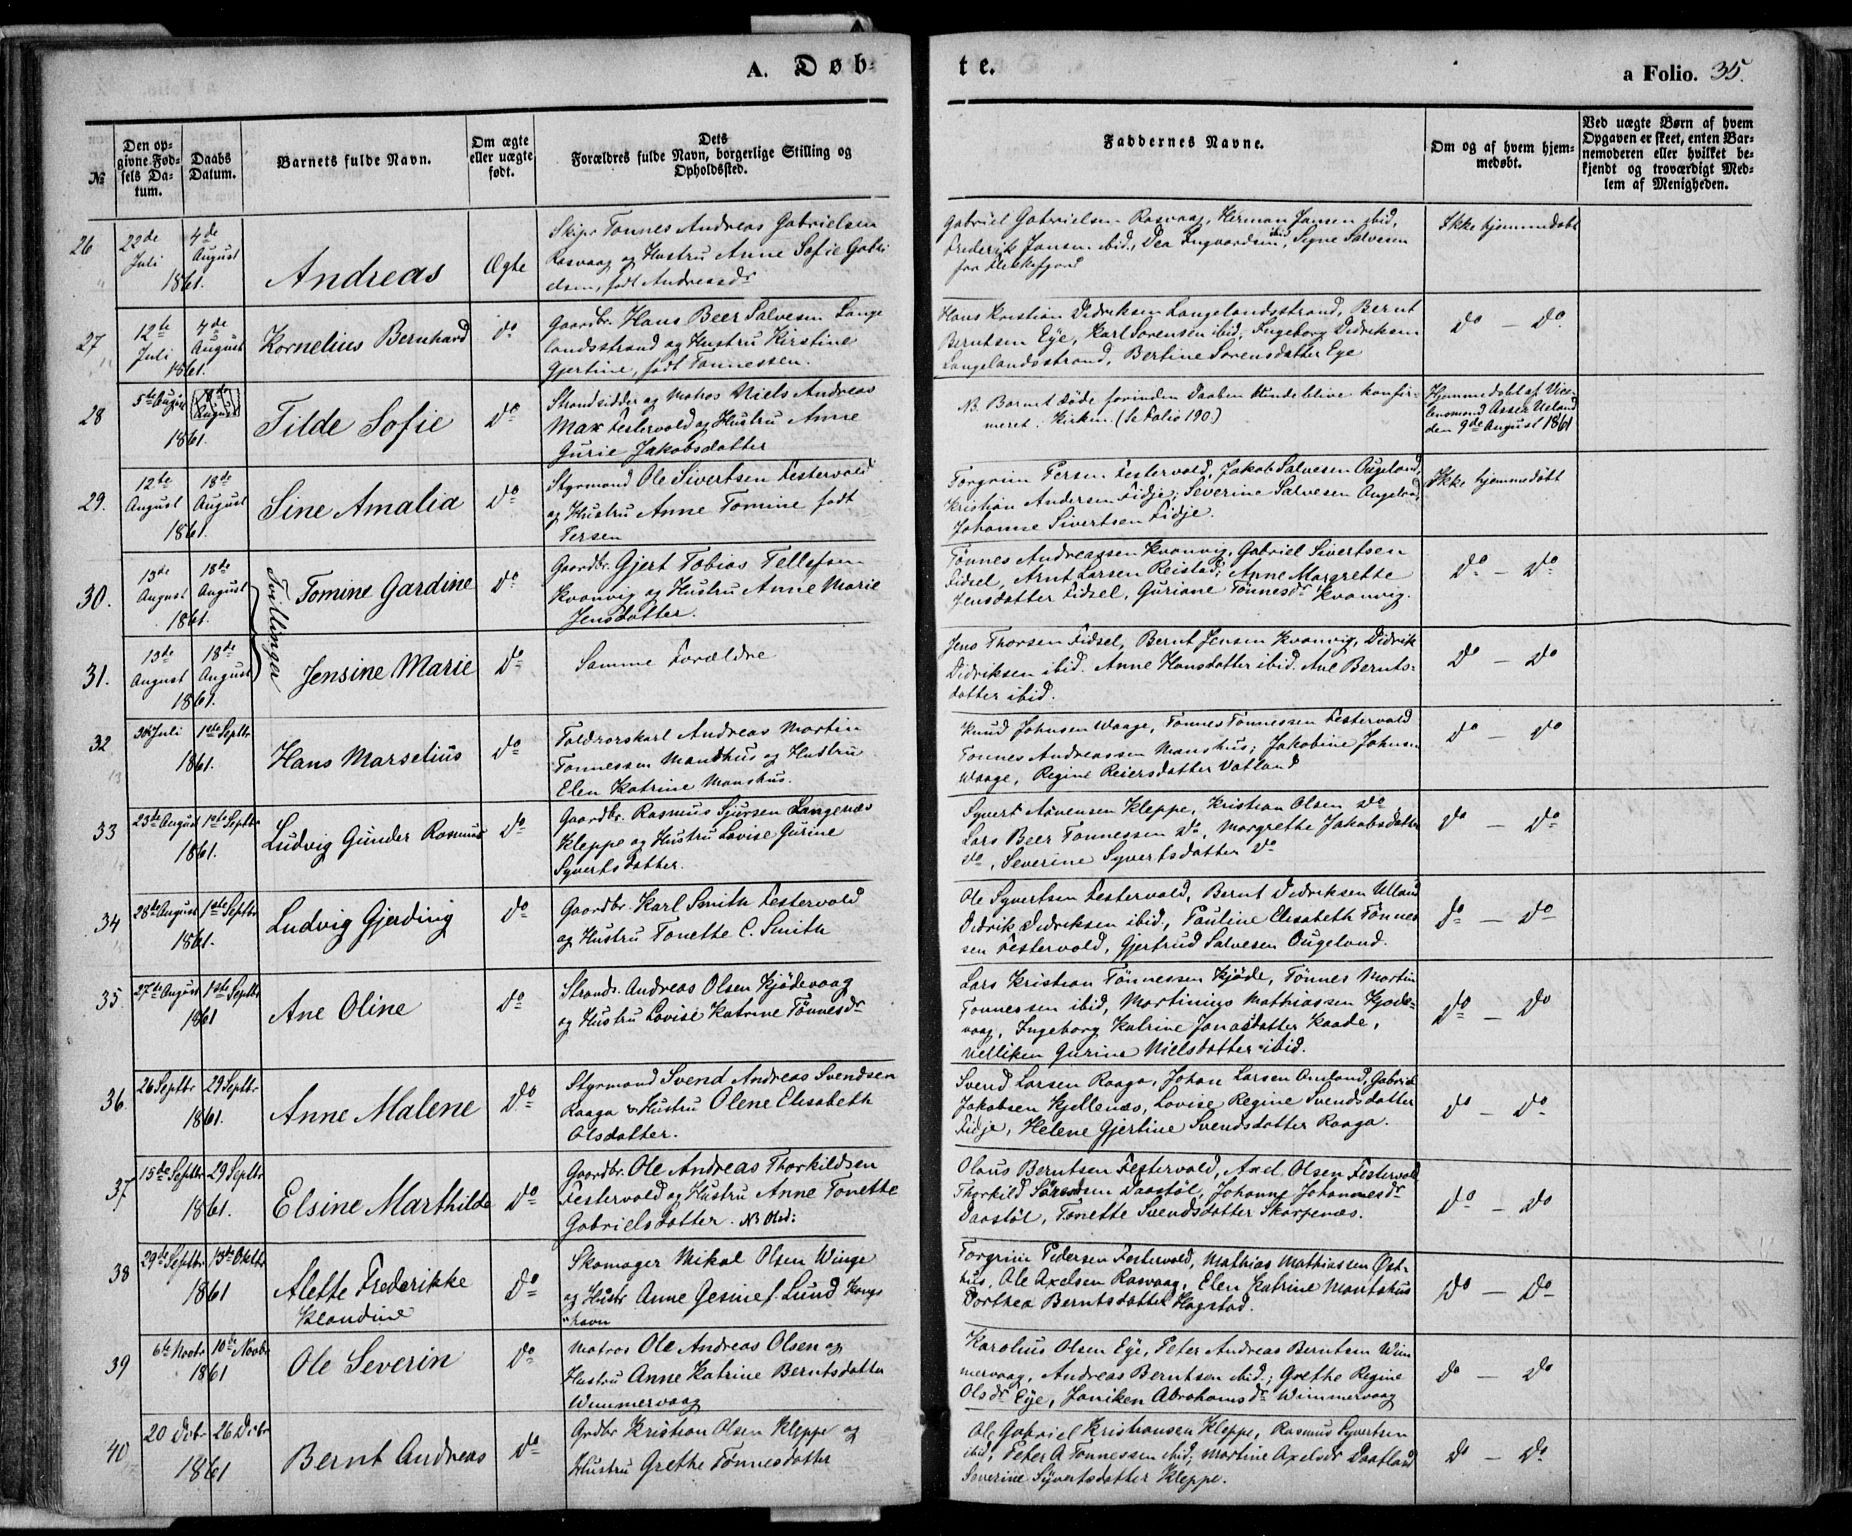 A. Døb-
te.
a Folio. 35.
№
Den op-
givne Fød-
sels Da-
tum.
Daabs
Datum.
Barnets fulde Navn.
Om ægte
eller uægte
født.
Dets
Forældres fulde Navn, borgerlige Stilling og
Opholdssted.
Faddernes Navne.
Om og af hvem hjem-
medøbt.
Ved uægte Børn af hvem
Opgaven er skeet, enten Bar-
nemoderen eller hvilket be-
kjendt og troværdigt Med-
lem af Menigheden.
26
22de
Juli
4de
August
1861.
Andreas
Ægte
Skipr Tønnes Andreas Gabrielsen
Rasvaag og Hustru Anne Sofie Gabri
elsen, født Andreasdr
Gabriel Gabrielsen Rasvaag, Herman Jansen ibid,
Frederik Jansen ibid, Dea Ingvardsen ibid, Signe Salvesen
fra Flekkefjord
Ikke hjemmedøbt
27
12te
Juli
4de
August
1861.
Kornelius Bernhard
do
Gaardbr. Hans Beer Salvesen Lange
landsstrand og Hustru Kirstine
Gjertine, født Tønnessen.
Hans Kristian Didriksen Langelandsstrand, Bernt
Berntsen Eye, Karl Sørensen ibid, Ingeborg Didriksen
Langelandsstrand, Bertine Sørensdatter Eye
do — do
28
5te August
August
1861.
Tilde Sofie
do
Strandsidder og Matros Niels Andreas
Max Festervold og Hustru Anne
Gurie Jakobsdatter
NB. Barnet døde forinden Daaben kunde blive konfir-
meret i Kirken. (se Folio 190.)
Hjemmedøbt af
Asser Ueland
den 9de August 1861
29.
12te
August
18de
August
1861.
Sine Amalia
do
Styrmand Ole Sivertsen Festervold
og Hustru Anne Tomine født
Persen
Torgrim Persen Festervold, Jakob Salvesen Øugeland,
Kristian Andersen Fidje, Severine Salvesen
Johanne Sivertsen Fidje.
Ikke hjemmedøbt
30.
13de
August
18de
August
1861.
Tvillinger
Tomine Gardine
do
Gaardbr. Gjert Tobias Tellefsen
Kvanvig og Hustru Anne Marie
Jensdatter.
Tønnes Andreassen Kvanvig, Gabriel Sivertsen
Fidsel, Arnt Larsen Reistad, Anne Margrette
Jensdatter Fidsel, Guriane Tønnesdr Kvanvig.
do — do
31.
13de
August
18de
August
1861.
Jensine Marie
do
Samme Forældre
Jens Thorsen Fidsel, Bernt Jensen Kvanvig, Didrik
Didriksen ibid. Anne Hansdatter ibid. Ane Bernts-
datter ibid.
do — do
32
30te Juli
1ste Septbr
1861.
Hans Marselius
do
Toldrorskarl Andreas Martin
Tønnessen Manshus og Hustru
Elen Katrine Manshus.
Knud Johnsen Waage, Tønnes Tønnessen Festervold
Tønnes Andreassen Manshus, Jakobine Johnsen
Waage, Regine Reiersdatter Vatland
do — do
33
23de August
1ste Septbr
1861.
Ludvig Gunder Rasmus
do
Gaardbr. Rasmus Sjursen Langenæs
Kleppe og Hustru Lovise Gurine
Syvertsdatter.
Syvert Kleppe, Kristian Olsen do
Lars Beer Tønnessen do, Margrethe Jakobsdatter
do, Severine Syvertsdatter do
do — do
34
28de August
1ste Septbr
1861.
Ludvig Gjerding
do
Gaardbr. Karl Smith Festervold
og Hustru Tonette C. Smith
Ole Syvertsen Festervold, Bernt Didriksen Ulland
Didrik Didriksen ibid, Pauline Elisabeth Tønnes
sen Festervold, Gjertrud Salvesen Øugeland.
do — do
35
27de August
1ste Septbr
1861
Ane Oline
do
Strands. Andreas Olsen Kjødevaag
og Hustru Lovise Katrine Tønnesdr
Lars Kristian Tønnessen Kjøde, Tønnes Martin
Tønnessen ibid, Martinius Mathiassen Kjøde-
vaag, Ingeborg Katrine Jonasdatter Kaade,
Nelliken Gurine Nielsdatter ibid.
do — do
36.
26 Septbr
29 Septbr
1861.
Anne Malene
do
Styrmand Svend Andreas Svendsen
Raaga & Hustru Olene Elisabeth
Olsdatter.
Svend Larsen Raaga, Johan Larsen Omland, Gabriel
Jakobsen Kjellenæs, Lovise Regine Svendsdatter
Fidje, Helene Gjertine Svendsdatter Raaga.
do — do
37
15de Septbr
29 Septbr
1861.
Elsine Marthilde
do
Gaardbr. Ole Andreas Thorkildsen
Festervold og Hustru Anne Tonette
Gabrielsdatter.
Olaus Berntsen Festervold, Axel Olsen Festervold
Thorkild Daastøl, Johanne Johannesdr
Daastøl, Tønette Svendsdatter Skarpenæs.
do — do
38
29de Septbr
13de Oktbr
1861
Alette Frederikke
Klandine
do
Skomager Mikal Olsen Winge
og Hustr Anne Gesine f. Lund Kongs
havn
Torgrim Pedersen Festervold, Mathias Mathiassen Øst-
hus, Ole Axelsen Rasvaag, Elen Katrine Mantshus
Dorthea Berntsdatter Hagstad.
do — do
39
6te Novbr
10de Novbr
1861
Ole Severin
do
Matros Ole Andreas Olsen og
Hustru Anne Katrine Berntsdatter
Wimmervaag
Karolius Olsen Eye, Peter Andreas Berntsen Wim
mervaag, Andreas Berntsen ibid, Grethe Regine
Olsdr Eye, Janiken Abrahamsdr Wimmervaag
do — do
40
20 Debr
26 Debr
1861
Bernt Andreas
do
Grdbr Kristian Olsen Kleppe og
Hustru Grethe Tønnesdatter
Ole Gabriel Kristiansen Kleppe, Rasmus Syvertsen
ibid, Peter A Tønnessen ibid, Martine Axelsdr Daatland
Severine Syvertsdatter Kleppe.
do — do